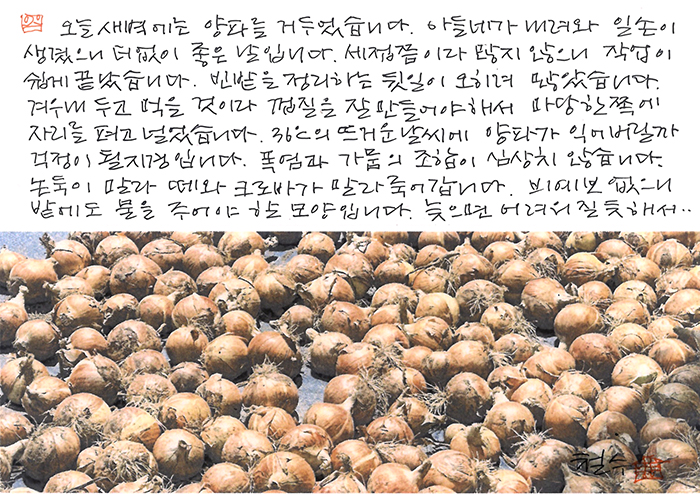 오늘 새벽에는 양파를 거두었습니다. 아들네가 내려와 일손이
생겼으니 더없이 좋은 날입니다. 세접쯤이라 많지 않으니 작업이
쉽게 끝났습니다. 빈밭을 정리하는 뒷일이 오히려 많았습니다.
겨우내 두고 먹을 것이라 껍질을 잘 만들어야해서 마당 한쪽에
자리를 펴고 널었습니다. 36℃의 뜨거운 날씨에 양파가 익어버릴까
걱정이 될 지경입니다. 폭염과 가뭄의 조합이 심상치 않습니다.
논둑이 말라 떼와 크로바가 말라 죽어갑니다. 비예보 없으니
밭에도 물을 주어야 할 모양입니다. 늦으면 어려워질 듯해서..
철수